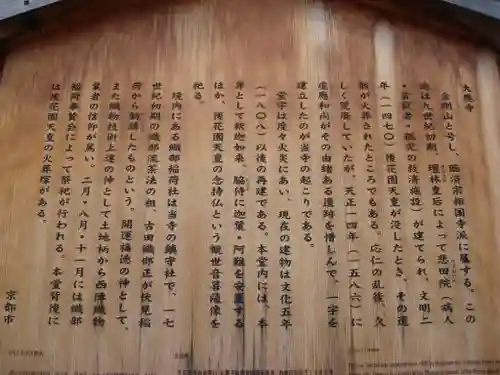 大應寺
金剛山と号し、臨済宗相国寺派に属する。この
地は九世紀初期、檀林皇后によって悲田院(病人
・貧窮者・孤児の救済施設)が建てられ、文明二
年(一四七〇)後花園天皇が没したとき、その遺
骸が火葬されたところでもある。応仁の乱後、久
しく荒廃していたが、天正一四年(一五八六)に
虚應和尚がその由緒ある遺跡を惜しんで、一宇を
建立したのが当寺の起こりである。
堂宇は度々火災にあい、現在の建物は文化五年
(一八〇八)以後の再建である。本堂内には、本
尊として釈迦如来、脇侍に迦葉・阿難を安置する
ほか、後花園天皇の念持仏という観世音菩薩像を
祀る。
境内にある織部稲荷社は当寺の鎮守社で、一七
世紀初期の織部流茶法の祖、古田織部正が伏見稲
荷から勧請したものという。開運福徳の神として、
また織物技術上達の神として土地柄から西陣織物
業者の信仰が篤い。二月・八月・十一月には織部
稲荷奉賛会によって祭祀が行われる。本堂背後に
は後花園天皇の火葬塚がある。
京都市